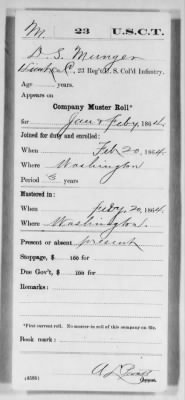 M. 23 U.S.C.T.
D. S. Munger
Lieut., Co. C, 23 Reg't U. S. Col'd Infantry.
Age years.
Appears on
Company Muster Roll*
for Jan & Feby, 1864.
Joined for duty and enrolled:
When Feb 20, 1864.
Where Washington
Period 3 years
Mustered in:
When Feby. 20, 1864.
Where Washington.
Present or absent present
Stoppage, $ 100 for
Due Gov't, $ 100 for
Remarks:
*First current roll. No muster-in roll of this company on file.
Book mark:
(458b) Copyist.